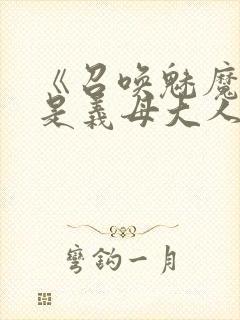 《召唤魅魔
是义母大人
弯钩一月